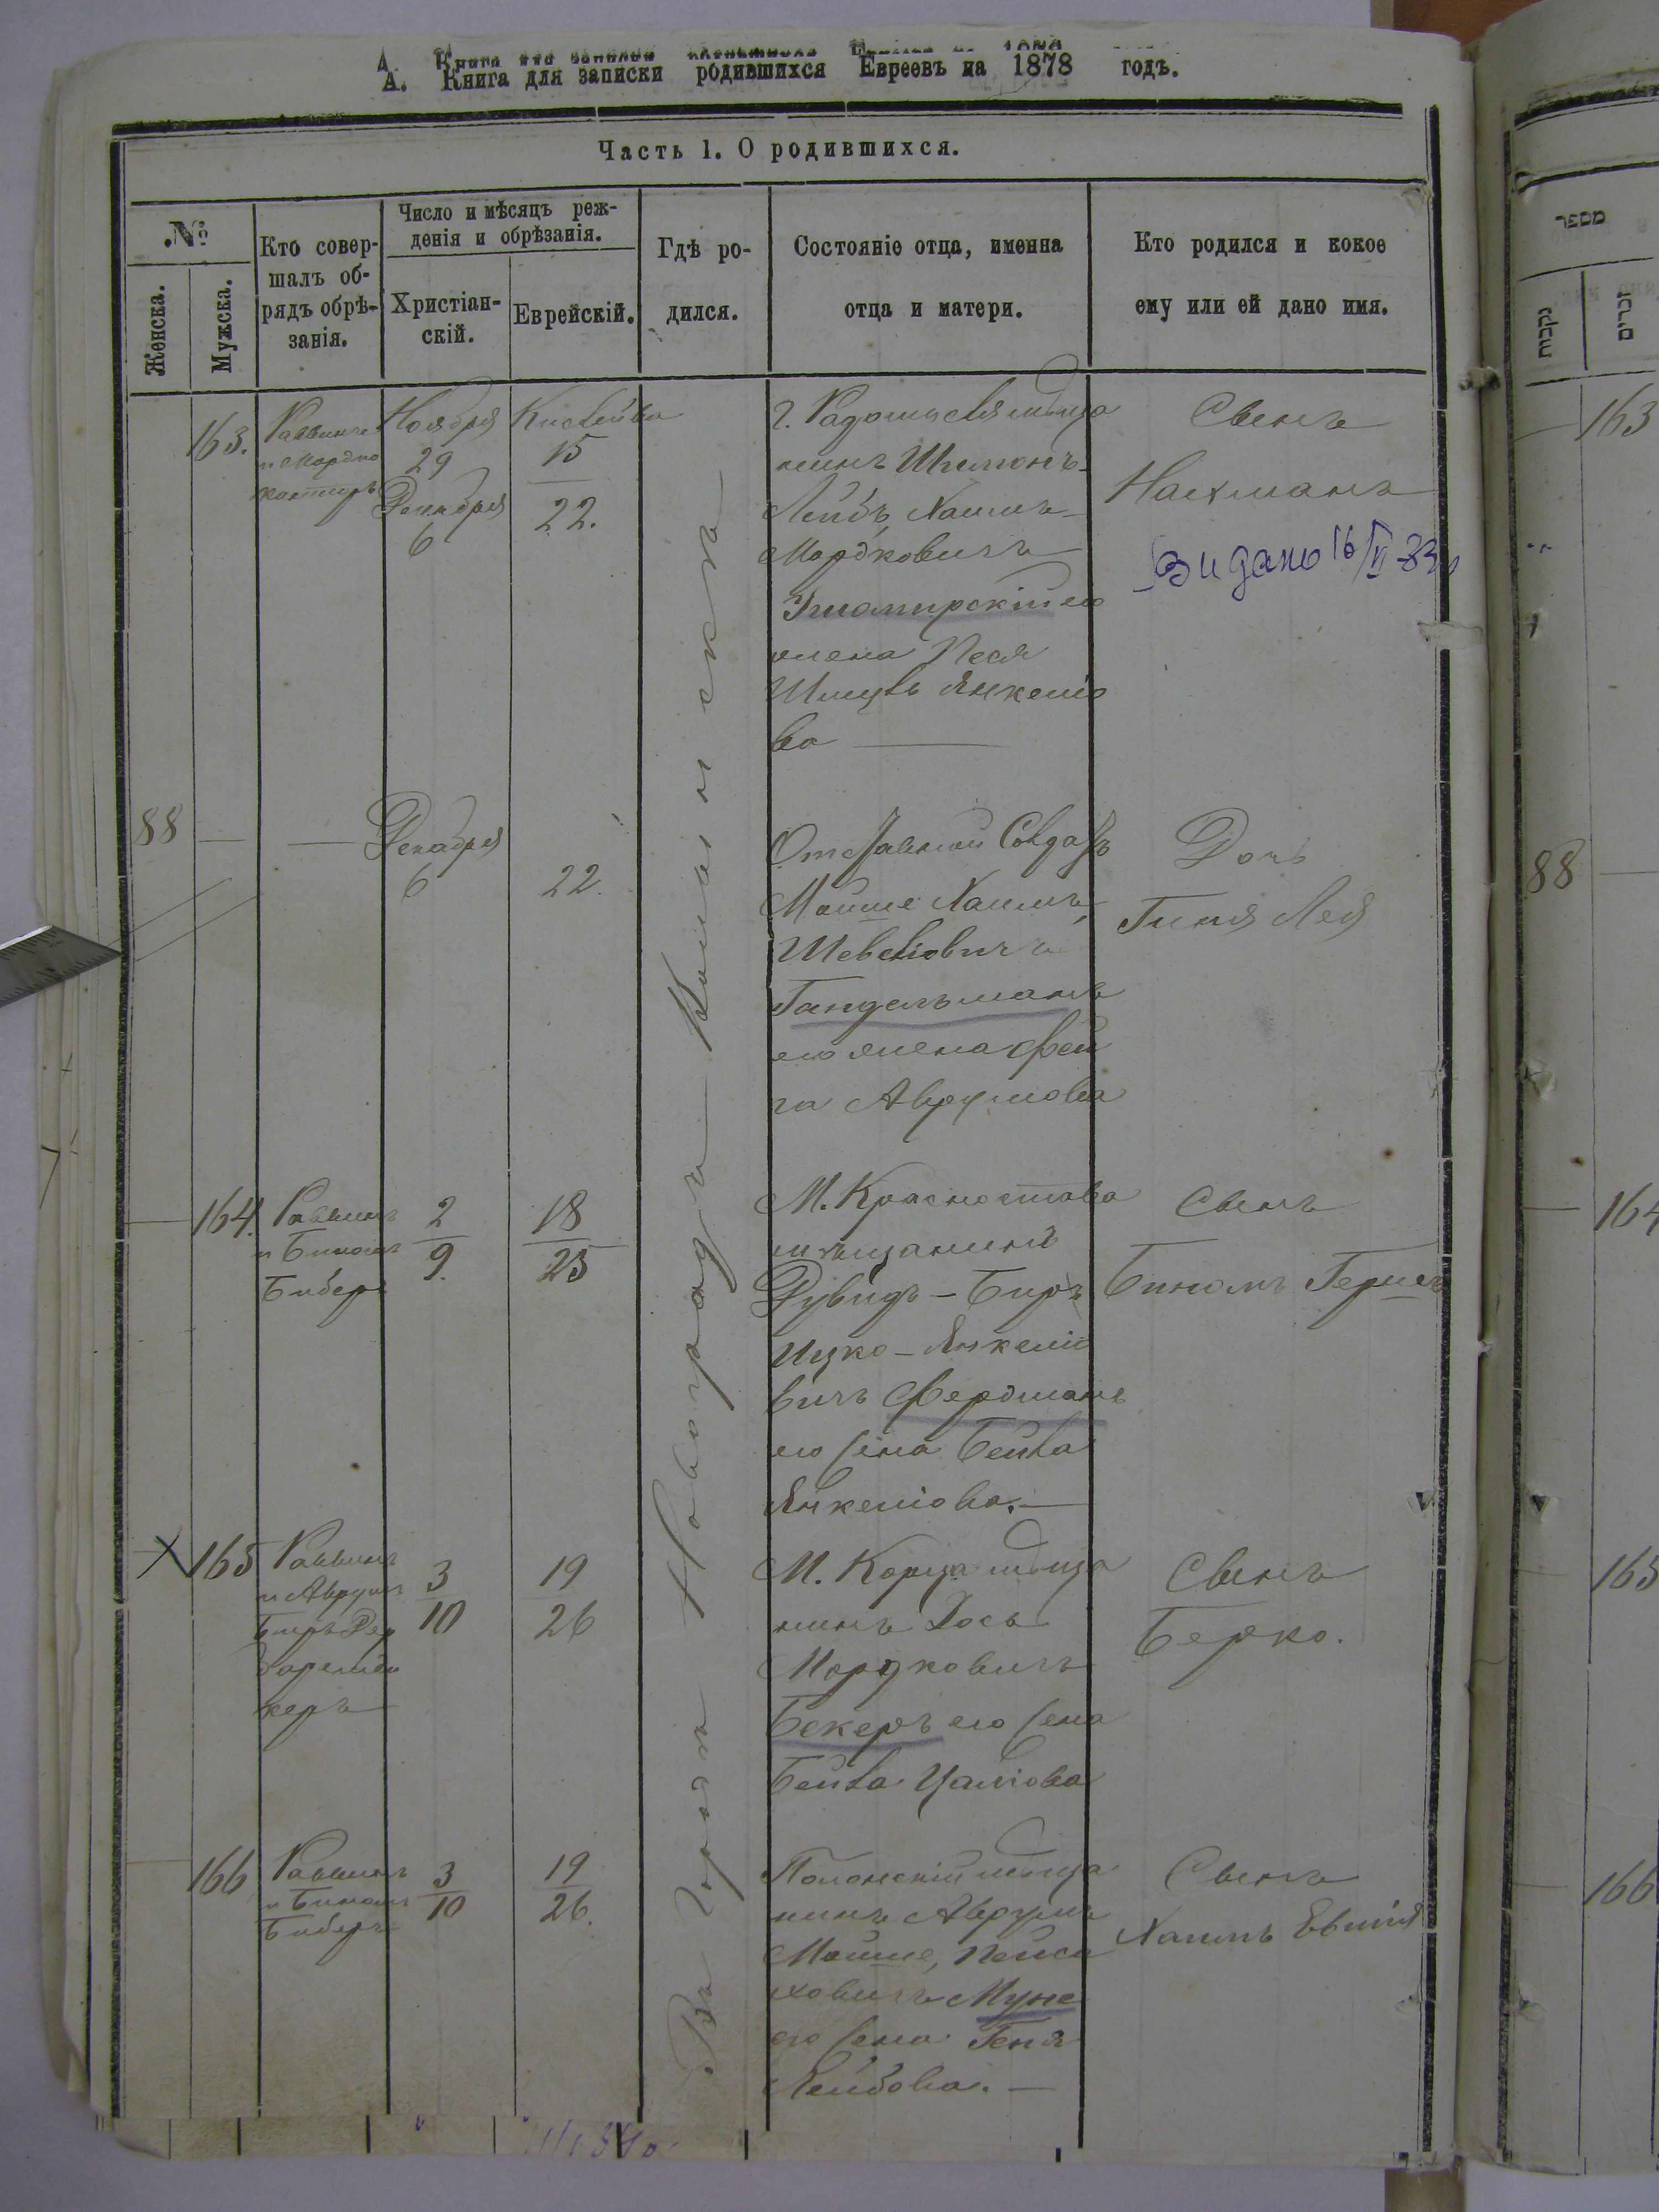 А. Книга для записки родившихся Евреевъ на 1878 годъ.
Часть 1. О родившихся.
№
Женска.
Мужска.
Кто совер-
шалъ об-
рядъ обрѣ-
занія.
Число и мѣсяцъ реж-
денія и обрѣзанія.
Христіан-
скій.
Еврейскій.
Гдѣ ро-
дился.
Состояніе отца, именна
отца и матери.
Кто родился и кокое
ему или ей дано имя.
Въ городѣ Новоградъ Волынскѣ
163.
Раввинъ
и Мордко
Ноября
29
Декабря
6
Кислейва
15
22.
г. Радомысля мѣща
нинъ Шимонъ-
Лейбъ Хаимъ-
Мордковичъ
его
жена Песя
Шмуль Янкеліо
ва
Сынъ
Нахманъ
Видано 16/VI 33
88
Декабря
6
22.
Отставной Солдатъ
Мойше Хаимъ,
Шевеліовичъ
Гандельманъ
его жена Фей
га Аврумова
Дочь
Гитя Лея
164.
Раввинъ
и Биномъ
Биберъ
2
9.
18
25
М. Красностава
мѣщанинъ
Дувидъ-Беръ
Ицко-Янкеліо
вичъ Фердманъ
его жена Бейла
Янкеліова.
Сынъ
Биномъ Гершъ
165
Раввинъ
и Аврумъ
Беръ
3
10
19
26
М. Корца мѣща
нинъ Іось
Мордковичъ
Бекеръ его жена
Бейла Цаліова
Сынъ
Берко.
166
Раввинъ
и Биномъ
Биберъ
3
10
19
26.
Полонскій мѣща
нинъ Аврумъ
Мойше, Пейса
ховичъ Муне
его жена Геня
Лейбова.
Сынъ
Хаимъ
מספר
נקבות
זכרים
163
88
164
165
166